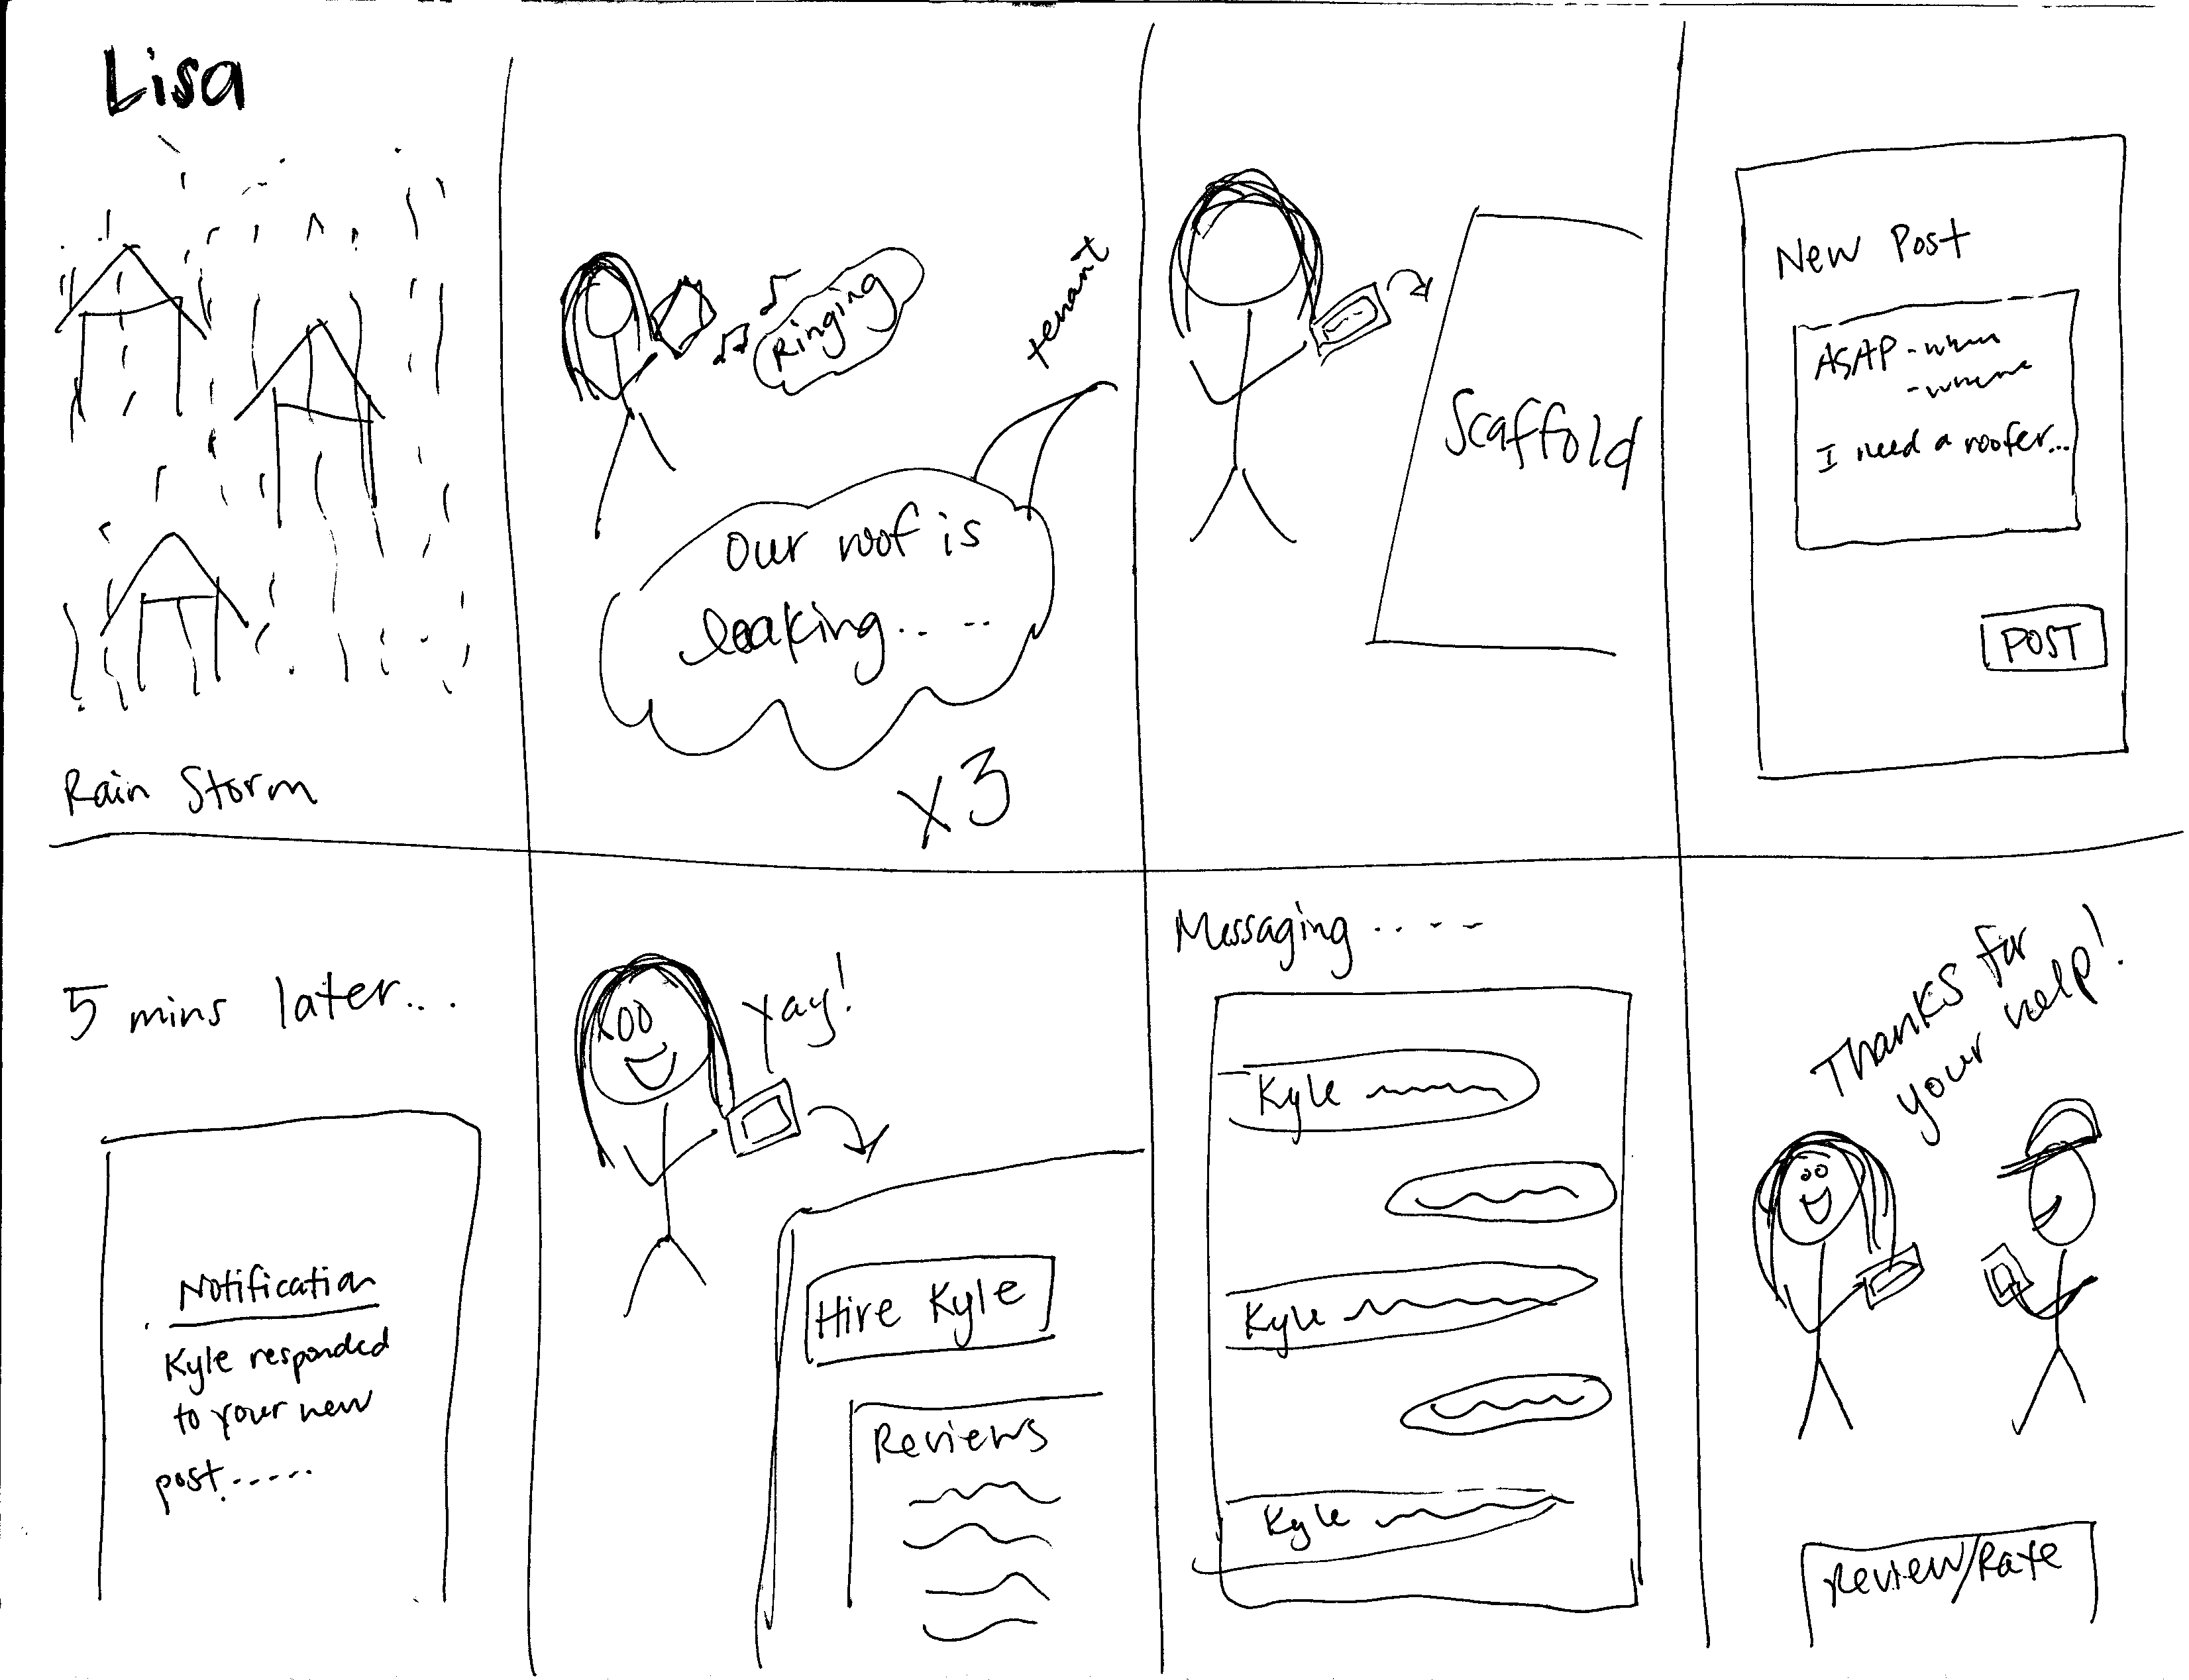 Lisa
Rain Storm
Ringing
tenant
Our roof is
leaking.. --
x3
Scaffold
New Post
ASAP - when
- where
I need a roofer...
POST
5 mins later...
Notification
Kyle responded
to your new
post.----
Yay!
Hire Kyle
Reviews
Messaging ..--
Kyle
Kyle
Kyle
Thanks for
your help!
Review/Rate